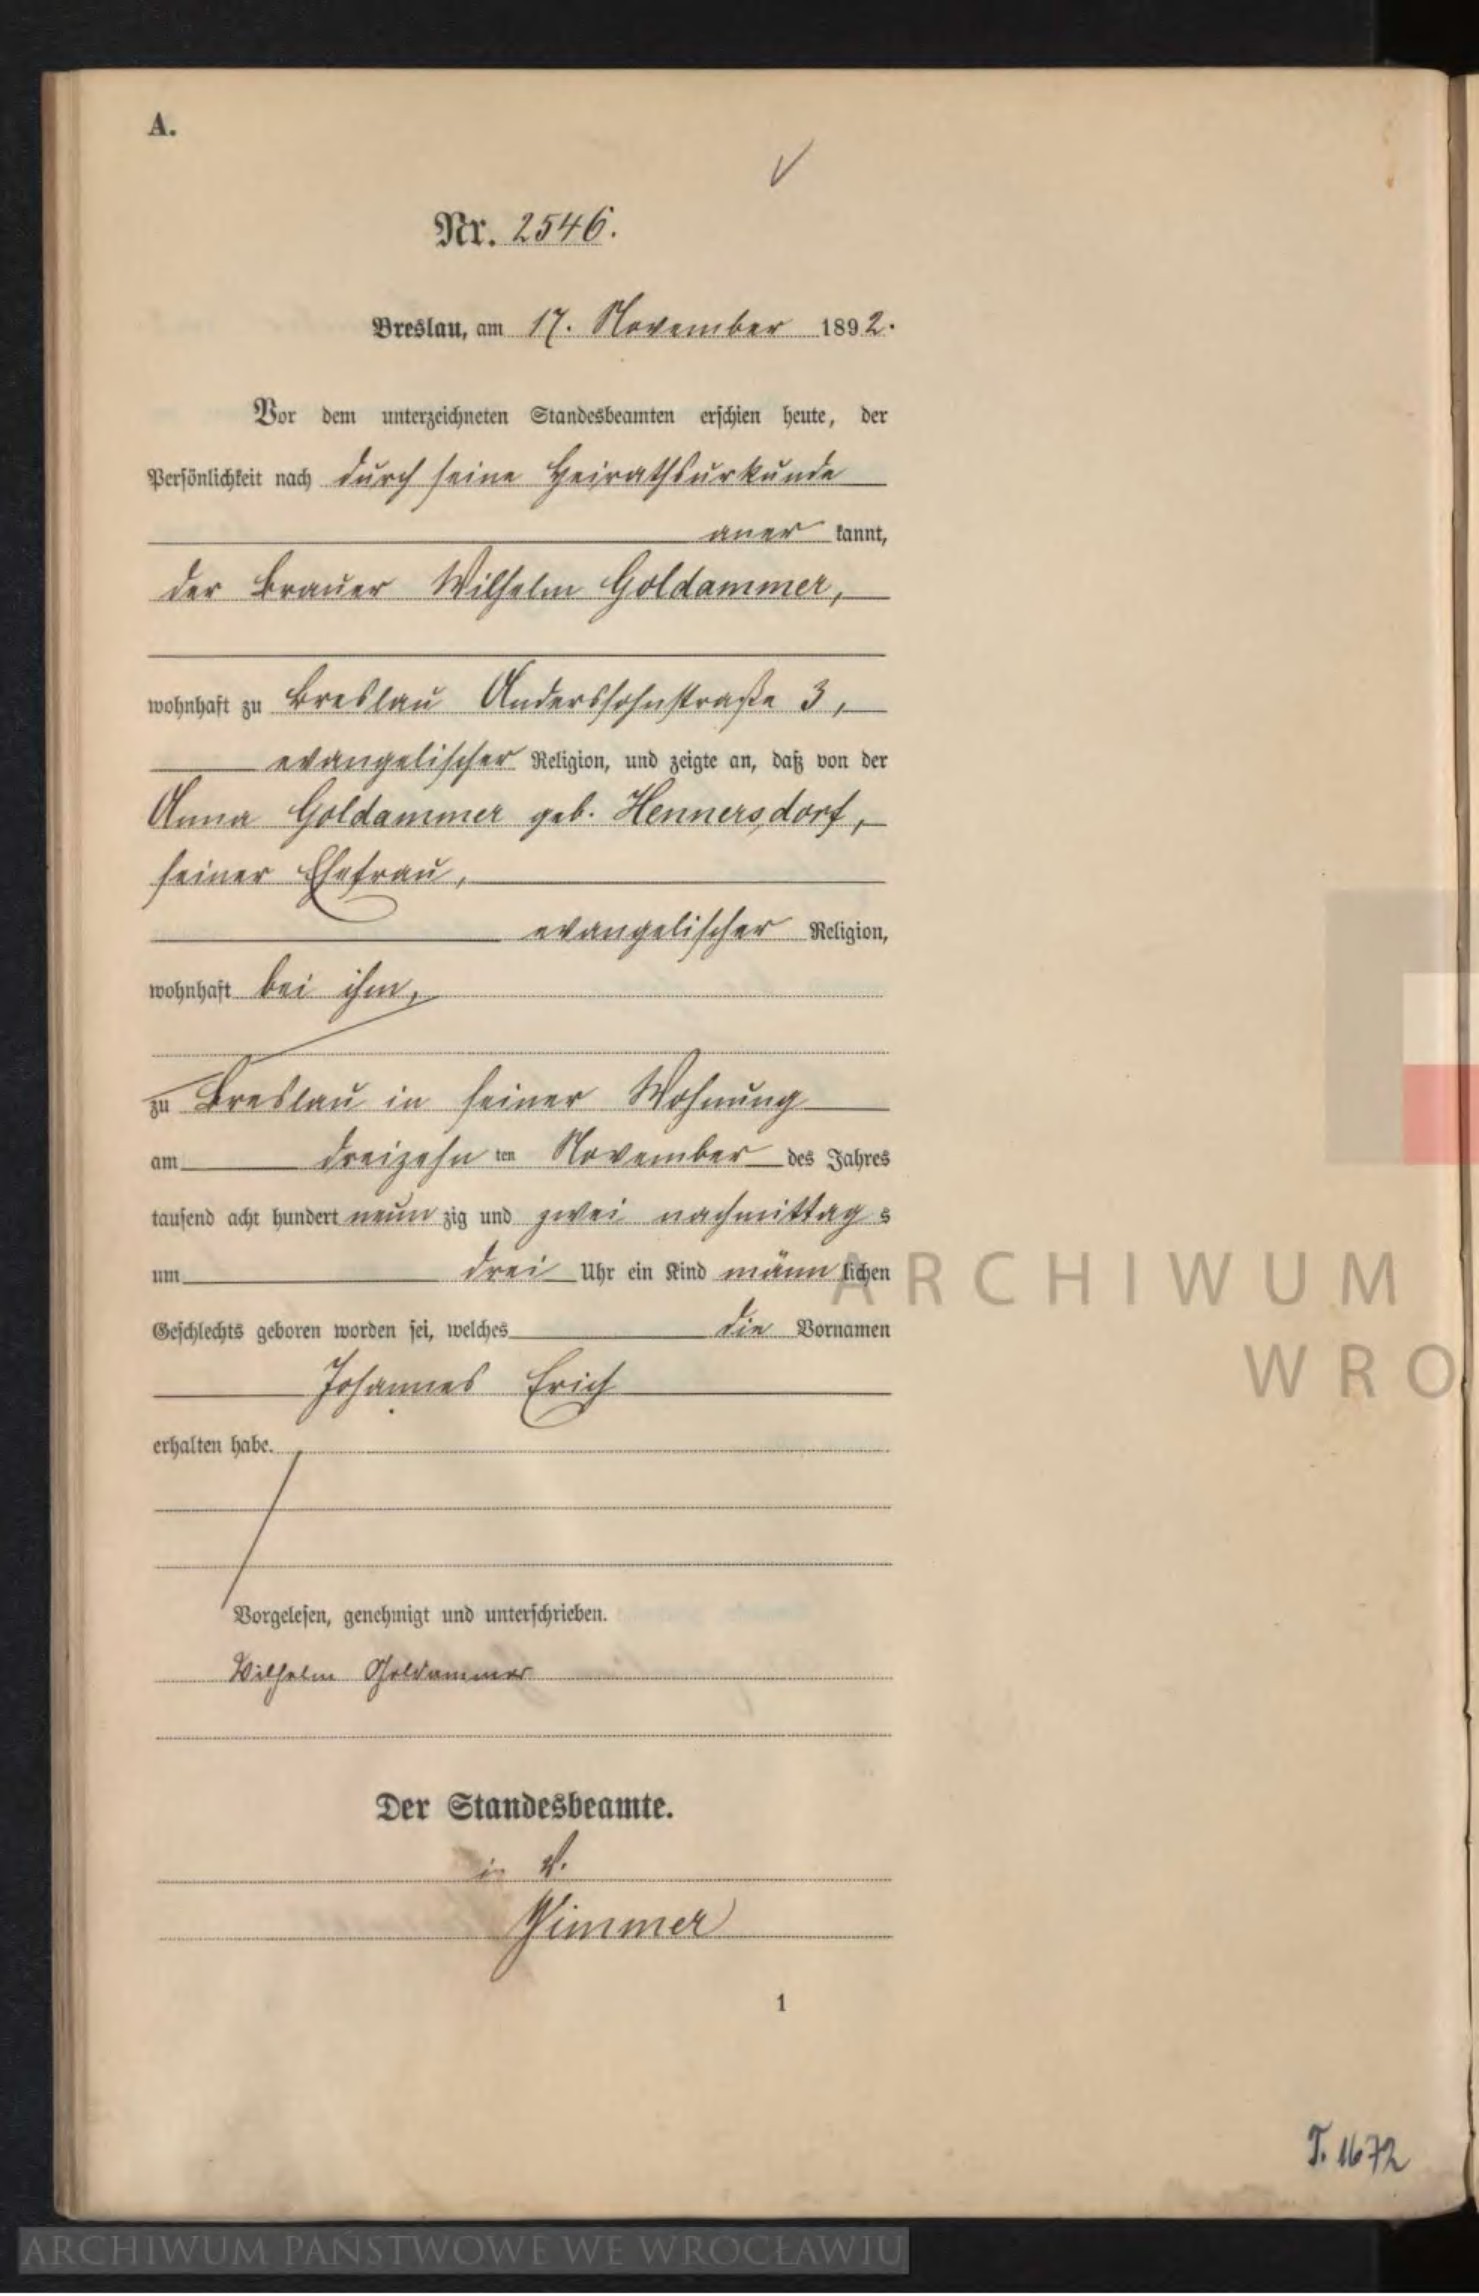 A.
Nr. 2546.
Breslau, am 17. November 1892.
Vor dem unterzeichneten Standesbeamten erschien heute, der
Persönlichkeit nach durch seine Heirathsurkunde
aner kannt,
der Brauer Wilhelm Goldammer,
wohnhaft zu Breslau Anderssohnstraße 3,
evangelischer Religion, und zeigte an, daß von der
Anna Goldammer geb. Hennersdorf,
seiner Ehefrau,
evangelischer Religion,
wohnhaft bei ihm,
zu Breslau in seiner Wohnung
am dreizehn ten November des Jahres
tausend acht hundert neun zig und zwei nachmittag s
um drei Uhr ein Kind männ lichen
Geschlechts geboren worden sei, welches die Vornamen
Johannes Erich
erhalten habe.
Vorgelesen, genehmigt und unterschrieben.
Wilhelm Goldammer
Der Standesbeamte.
in V.
1
T. 1672
ARCHIWUM
WRO
ARCHIWUM PAŃSTWOWE WE WROCŁAWIU